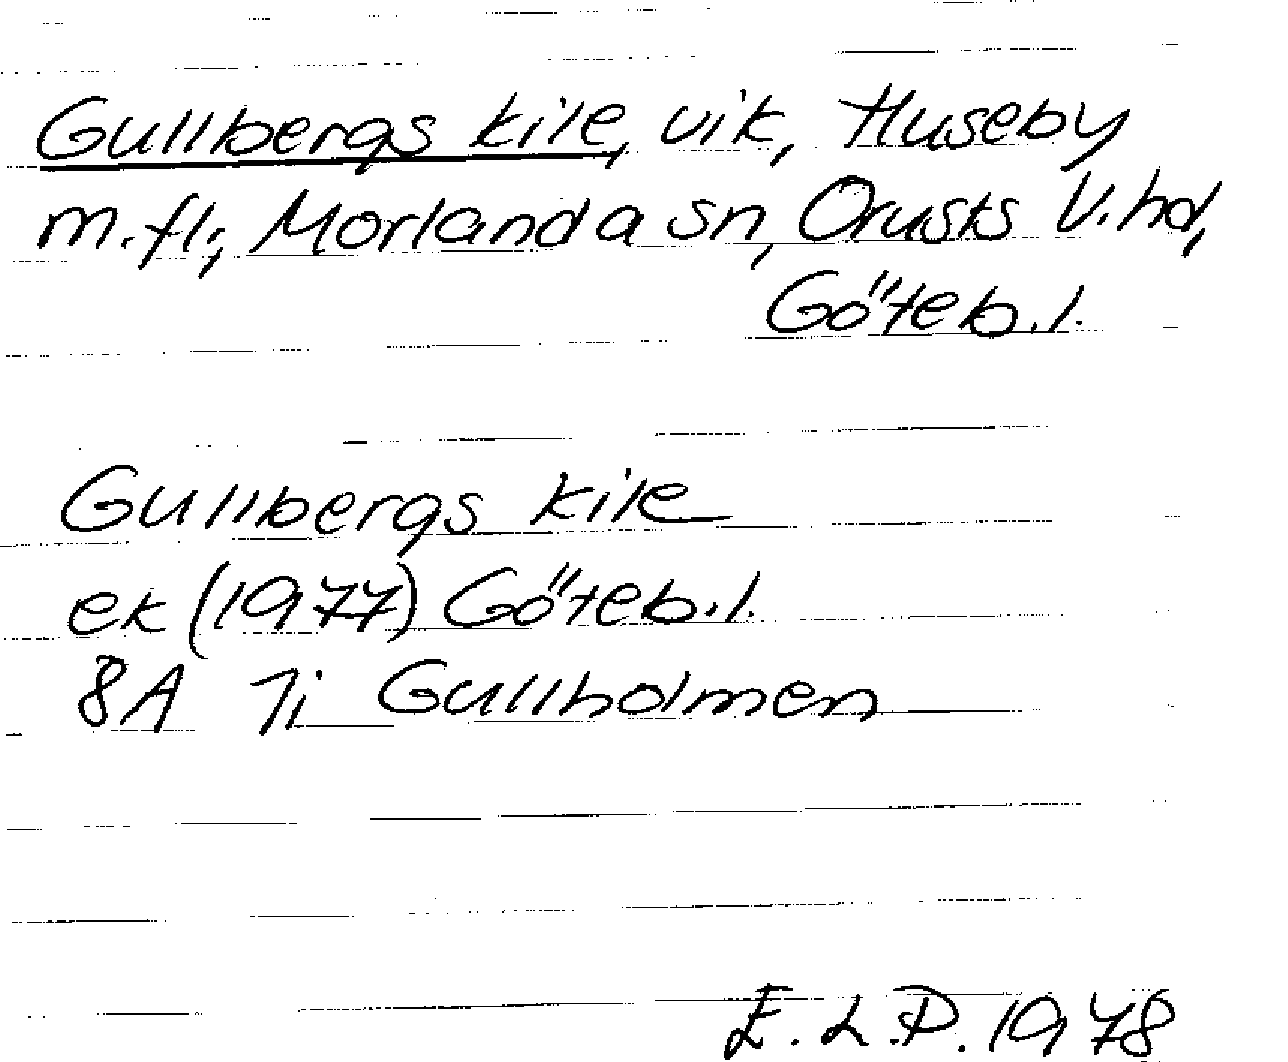 Gullbergs kile, vik, Huseby
m.fl., Morlanda sn, Orusts V. hd,
Göteb.l.
Gullbergs kile
ek (1977) Göteb.l.
8A 7i Gullholmen
E.L.P. 1978